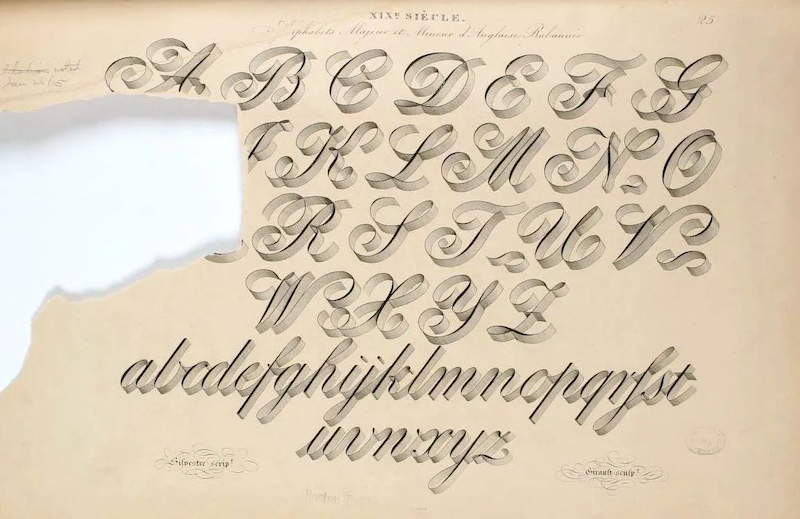 XIXe SIÈCLE.
25
Alphabets Majeur et Mineur d'Anglaise Rubannée
A B C D E F G
K L M N O
R S T U V
W X Y Z
abcdefghijklmnopqrſst
uvnxyz
Silvestre script.
Girault sculpt.